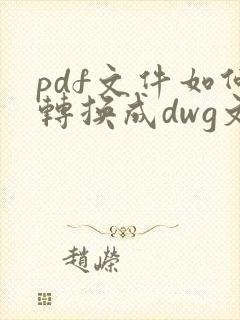 pdf文件如何
轉換成dwg文
趙嶸